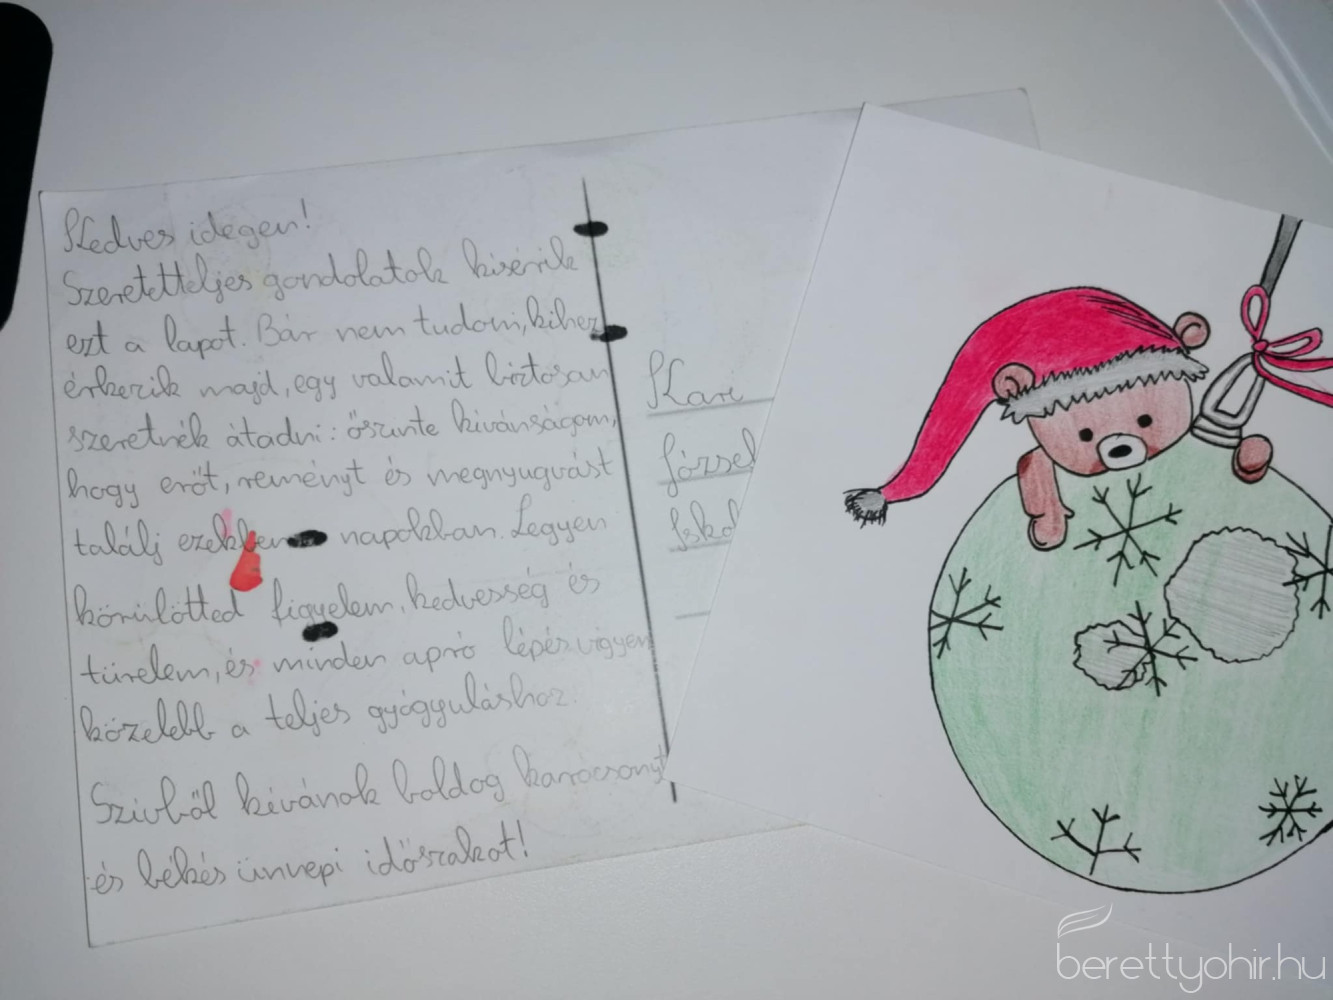 Kedves idegen!
Szeretetteljes gondolatok kisérik
ezt a lapot. Bár nem tudom, kihez
érkezik majd, egy valamit biztosan
szeretnék átadni: őszinte kívánságom,
hogy erőt, reményt és megnyugvást
találj ezekben napokban. Legyen
körülötted figyelem, kedvesség és
türelem, és minden apró lépés vigyen
közelebb a teljes gyógyuláshoz.
Szívből kívánok boldog karácsonyt
és békés ünnepi időszakot!
József
berettyohir.hu